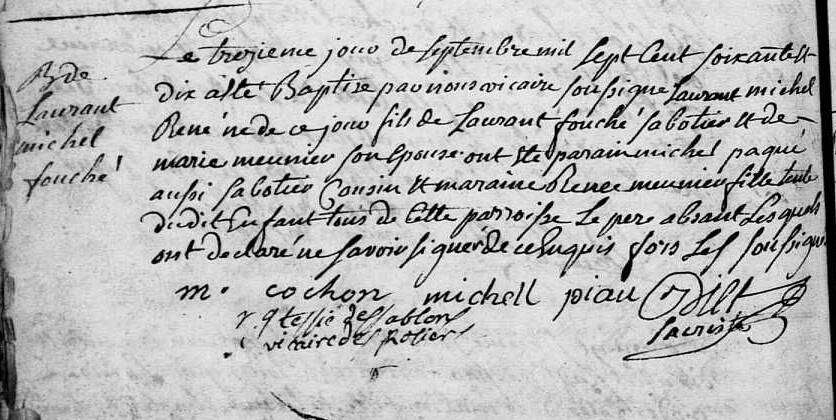 B de
Laurant
michel
fouché
Le trezieme jour de septembre mil sept cent soixante et
dix a ete Baptise par nous vicaire soussigne Laurant michel
René né de ce jour fils de Laurant fouché sabotier et de
marie meunier son epouse ont ete parain michel paqué
aussi sabotier Cousin et maraine Renee meunier fille tente
dudit Enfant tous de cette parroisse Le pere absant Lesquels
ont declaré ne savoir signer de ce Enquis fors Les soussignes
m. cochon michell piau Dilt
sacriste
tessie des sablons
vicaire des Rosiers